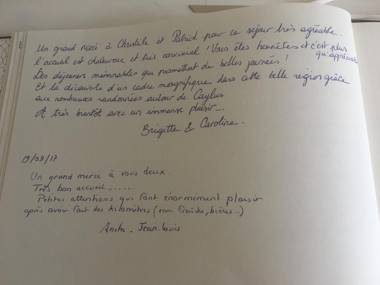 Un grand merci à Clotilde et Patrick pour ce séjour très agréable.
L'accueil est chaleureux et très convivial ! Vous êtes honnêtes et c'est plus
qu'appréciable
Des déjeuners mémorables qui promettent de belles journées !
Et la découverte d'un cadre magnifique dans cette belle région grâce
aux nombreuses randonnées autour de Caylus
A très bientôt avec un immense plaisir...
Brigitte & Caroline.
17
Un grand merci à vous deux.
Très bon accueil.......
Petites attentions qui font énormement plaisir
après avoir fait des kilomètres (eau fraîche, bières...)
Anita - Jean-Louis